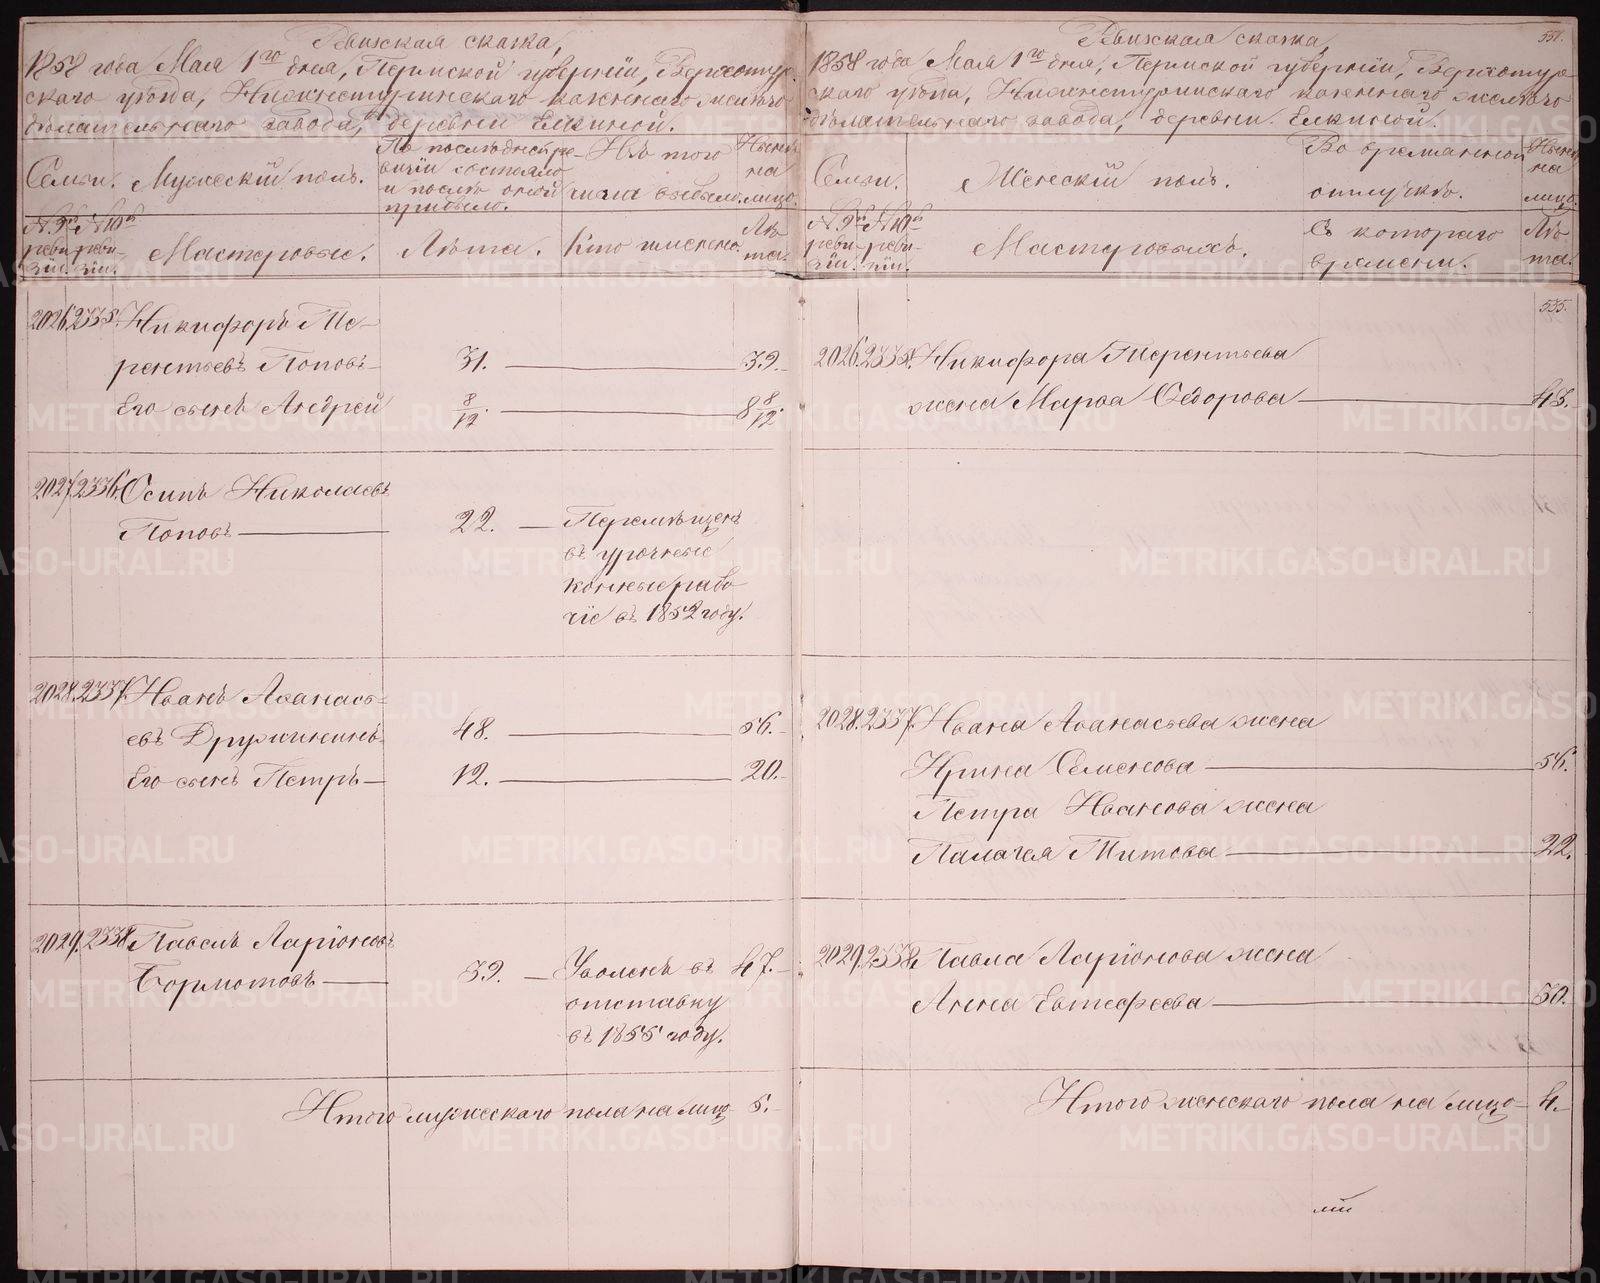 Ревизская сказка,
1858 года Мая 1го дня, Пермской губернiи, Верхотур-
скаго уѣзда, Нижнетуринскаго казеннаго желѣзо-
дѣлательнаго завода, деревни Елкиной.
Семьи. Мужескiй полъ. По послѣдней ре- Изъ того Нынѣ
визiи состояло на
и послѣ оной числа выбыло. лицо.
прибыло.
№ 9й № 10й
реви- реви- Мастеровые. Лѣта. Когда именно Лѣ-
зiи. зiи. та.
2026. 2335. Никифоръ Те-
рентьевъ Поповъ 31. 39.
Его сынъ Андрей 8/12. 8 8/12.
2027. 2336. Осипъ Николаевъ
Поповъ 22. Перемѣщенъ
въ урочные
конные рабо-
чiе въ 1852 году.
2028. 2337. Иванъ Аѳанась-
евъ Дружининъ 48. 56.
Его сынъ Петръ 12. 20.
2029. 2338. Павелъ Ларiоновъ
Бормотовъ 39. Уволенъ въ 47.
отставку
въ 1855 году.
Итого мужескаго пола на лицо 5.
551.
Ревизская сказка,
1858 года Мая 1го дня, Пермской губернiи, Верхотур-
скаго уѣзда, Нижнетуринскаго казеннаго желѣзо-
дѣлательнаго завода, деревни Елкиной.
Семьи. Женскiй полъ. Во временной Нынѣ
на
отлучкѣ. лицо.
№ 9й № 10й
реви- реви- Мастеровыхъ. Съ котораго Лѣ-
зiи. зiи. времени. та.
535.
2026. 2335. Никифора Терентьева
жена Марѳа Ѳедорова 43.
2028. 2337. Ивана Аѳанасьева жена
Ирина Семенова 56.
Петра Иванова жена
Палагея Титова 22.
2029. 2338. Павла Ларiонова жена
Анна Евтефеева 50.
Итого женскаго пола на лицо 4.
METRIKI.GASO-URAL.RU